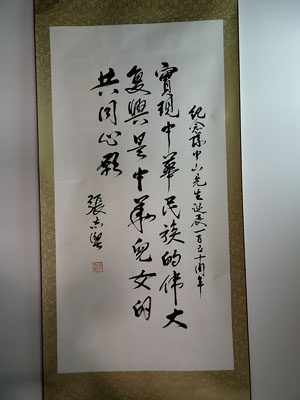 纪念孫中山先生诞辰一百五十周年
實現中華民族的偉大
复興是中華兒女的
共同心願
張志